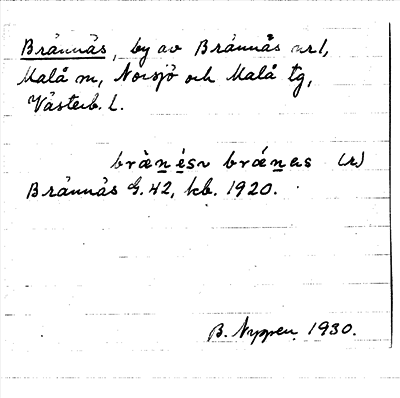 Brännås, by av Brännås nr 1,
Malå sn, Norsjö och Malå tg,
Västerb. l.
Brännås G. 42, kb. 1920.
B. Nyppen 1930.